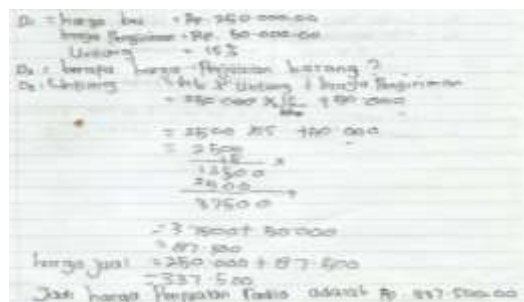 D1 = harga beli = Rp. 250.000.00
biaya Pengiriman = Rp. 50.000.00
Untung = 15%
D2 = berapa harga Penjualan barang ?
D3 = Untung Untung + biaya Pengiriman
= 250.000 X + 50.000
= 2500 X15 +50.000
= 2500
15 x
12500
2500 +
37500
= 37500+ 50.000
= 87.500
harga jual = 250.000 + 87.500
= 337.500
Jadi harga Penjualan Radio adalah Rp 337.500.00